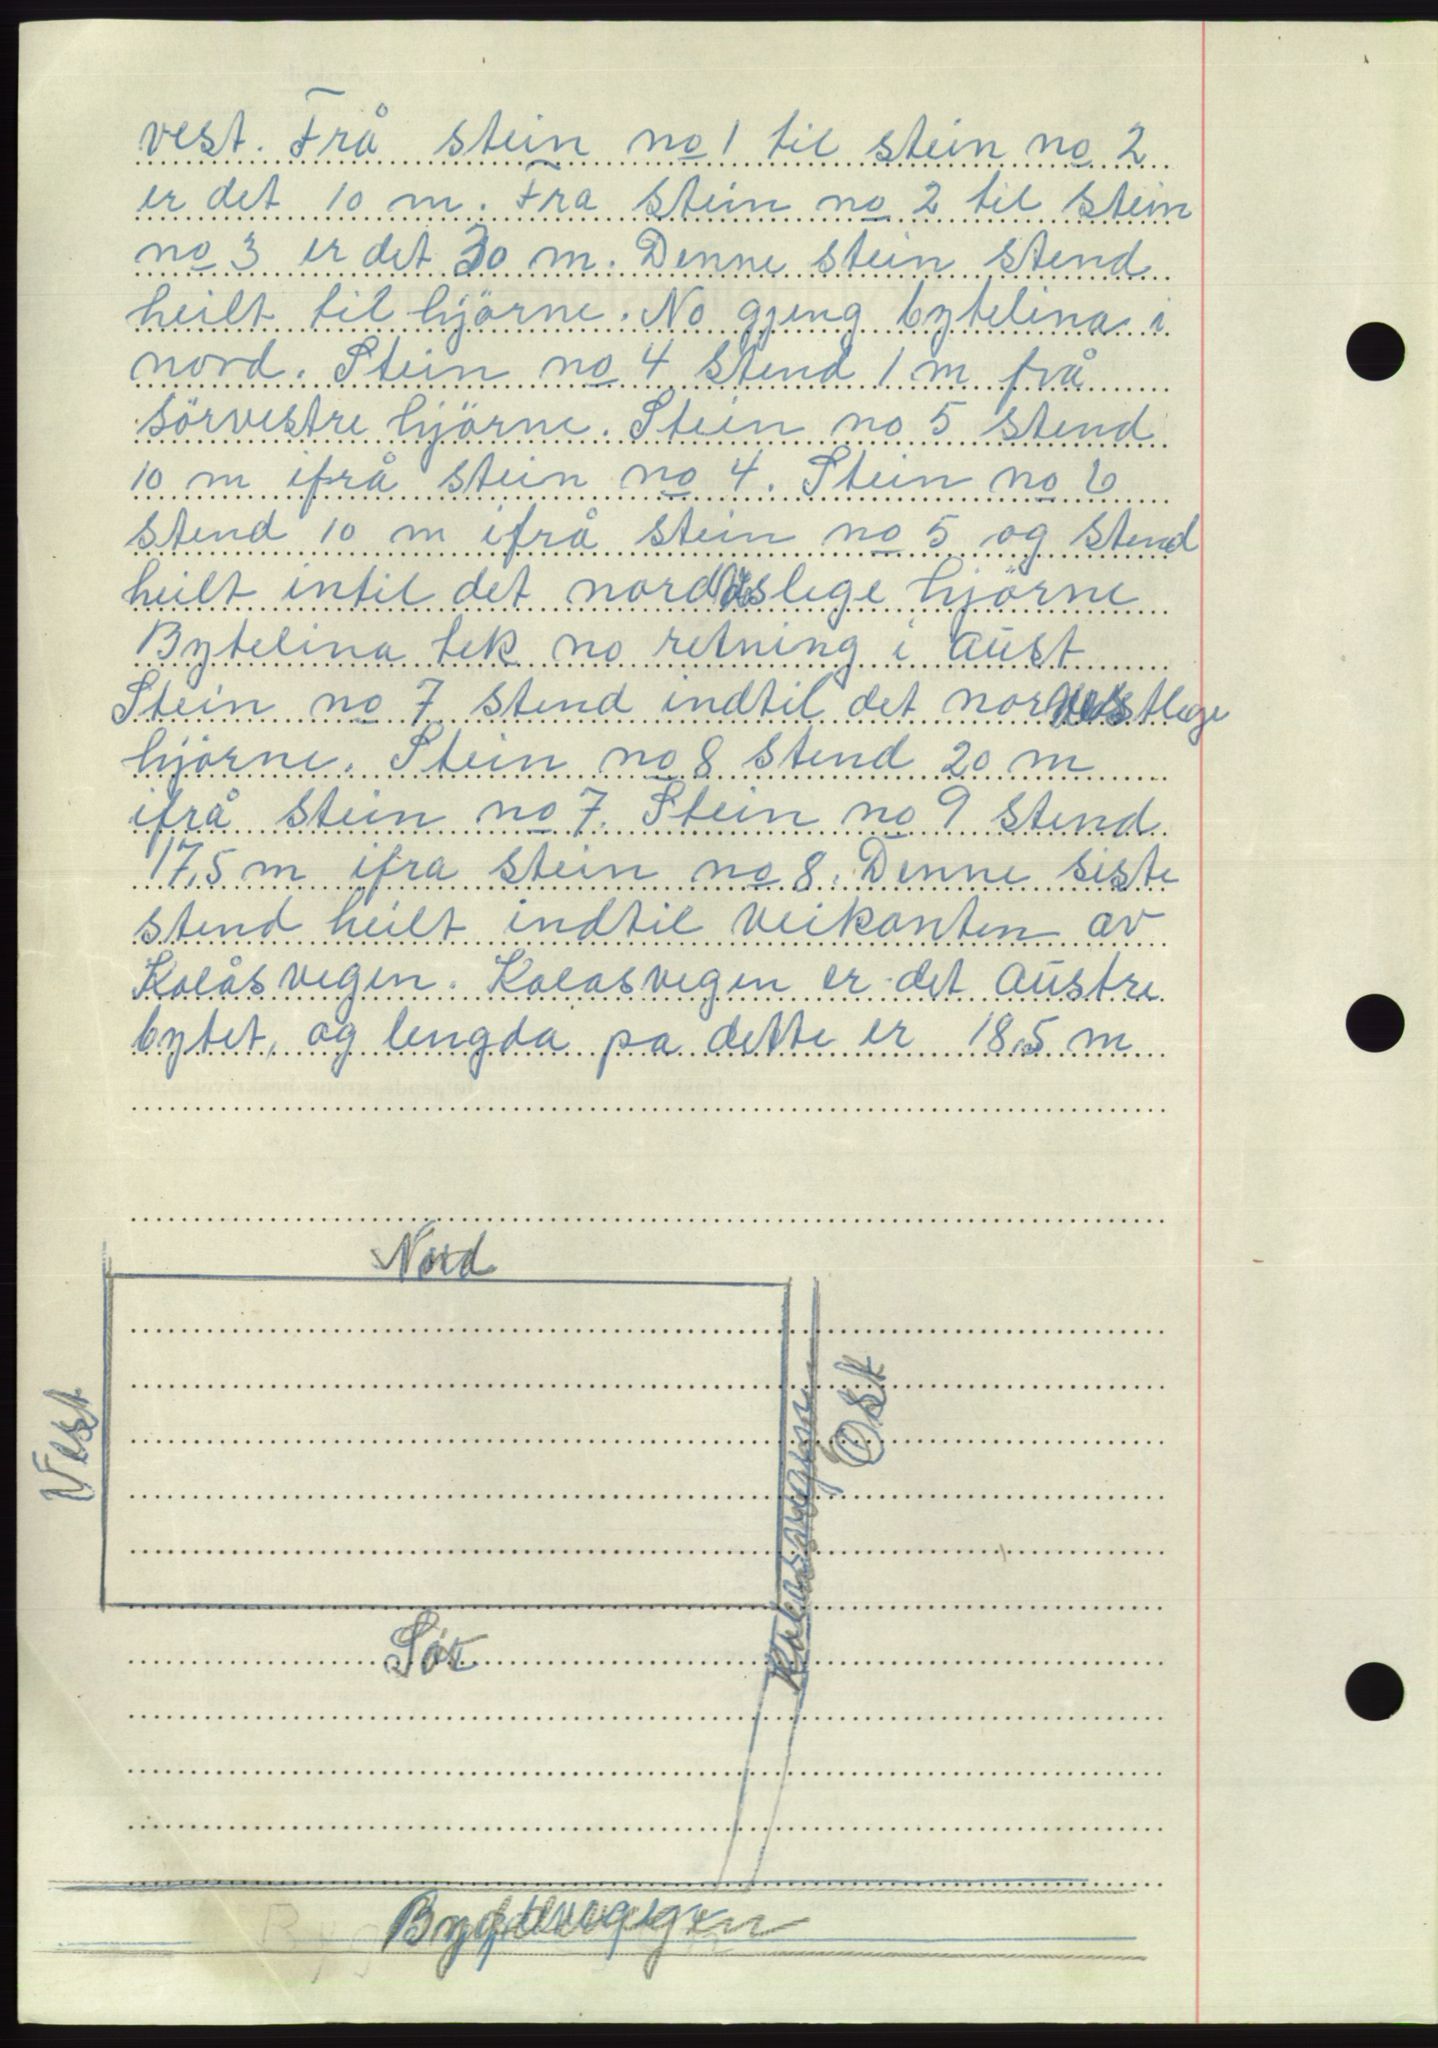 vest. Frå stein no 1 til stein no 2
er det 10 m. Fra stein no 2 til stein
no 3 er det 30 m. Denne stein stend
heilt til hjörne. No gjeng bytelina i
nord. Stein no 4 stend 1 m frå
sörvestre hjörne. Stein no 5 stend
10 m ifrå stein no 4. Stein no 6
stend 10 m ifrå stein no 5 og stend
heilt intil det hjörne
Bytelina tek no retning i aust
Stein no 7 stend indtil det nordvestlege
hjörne. Stein no 8 stend 20 m
ifrå stein no 7. Stein no 9 stend
17,5 m ifra stein no 8. Denne siste
stend heilt indtil veikanten av
Kolåsvegen. Kolasvegen er det austre
bytet, og lengda pa dette er 18,5 m
Nord
Vest
Øst
Kolasvegen
Sör
Bygdevegen